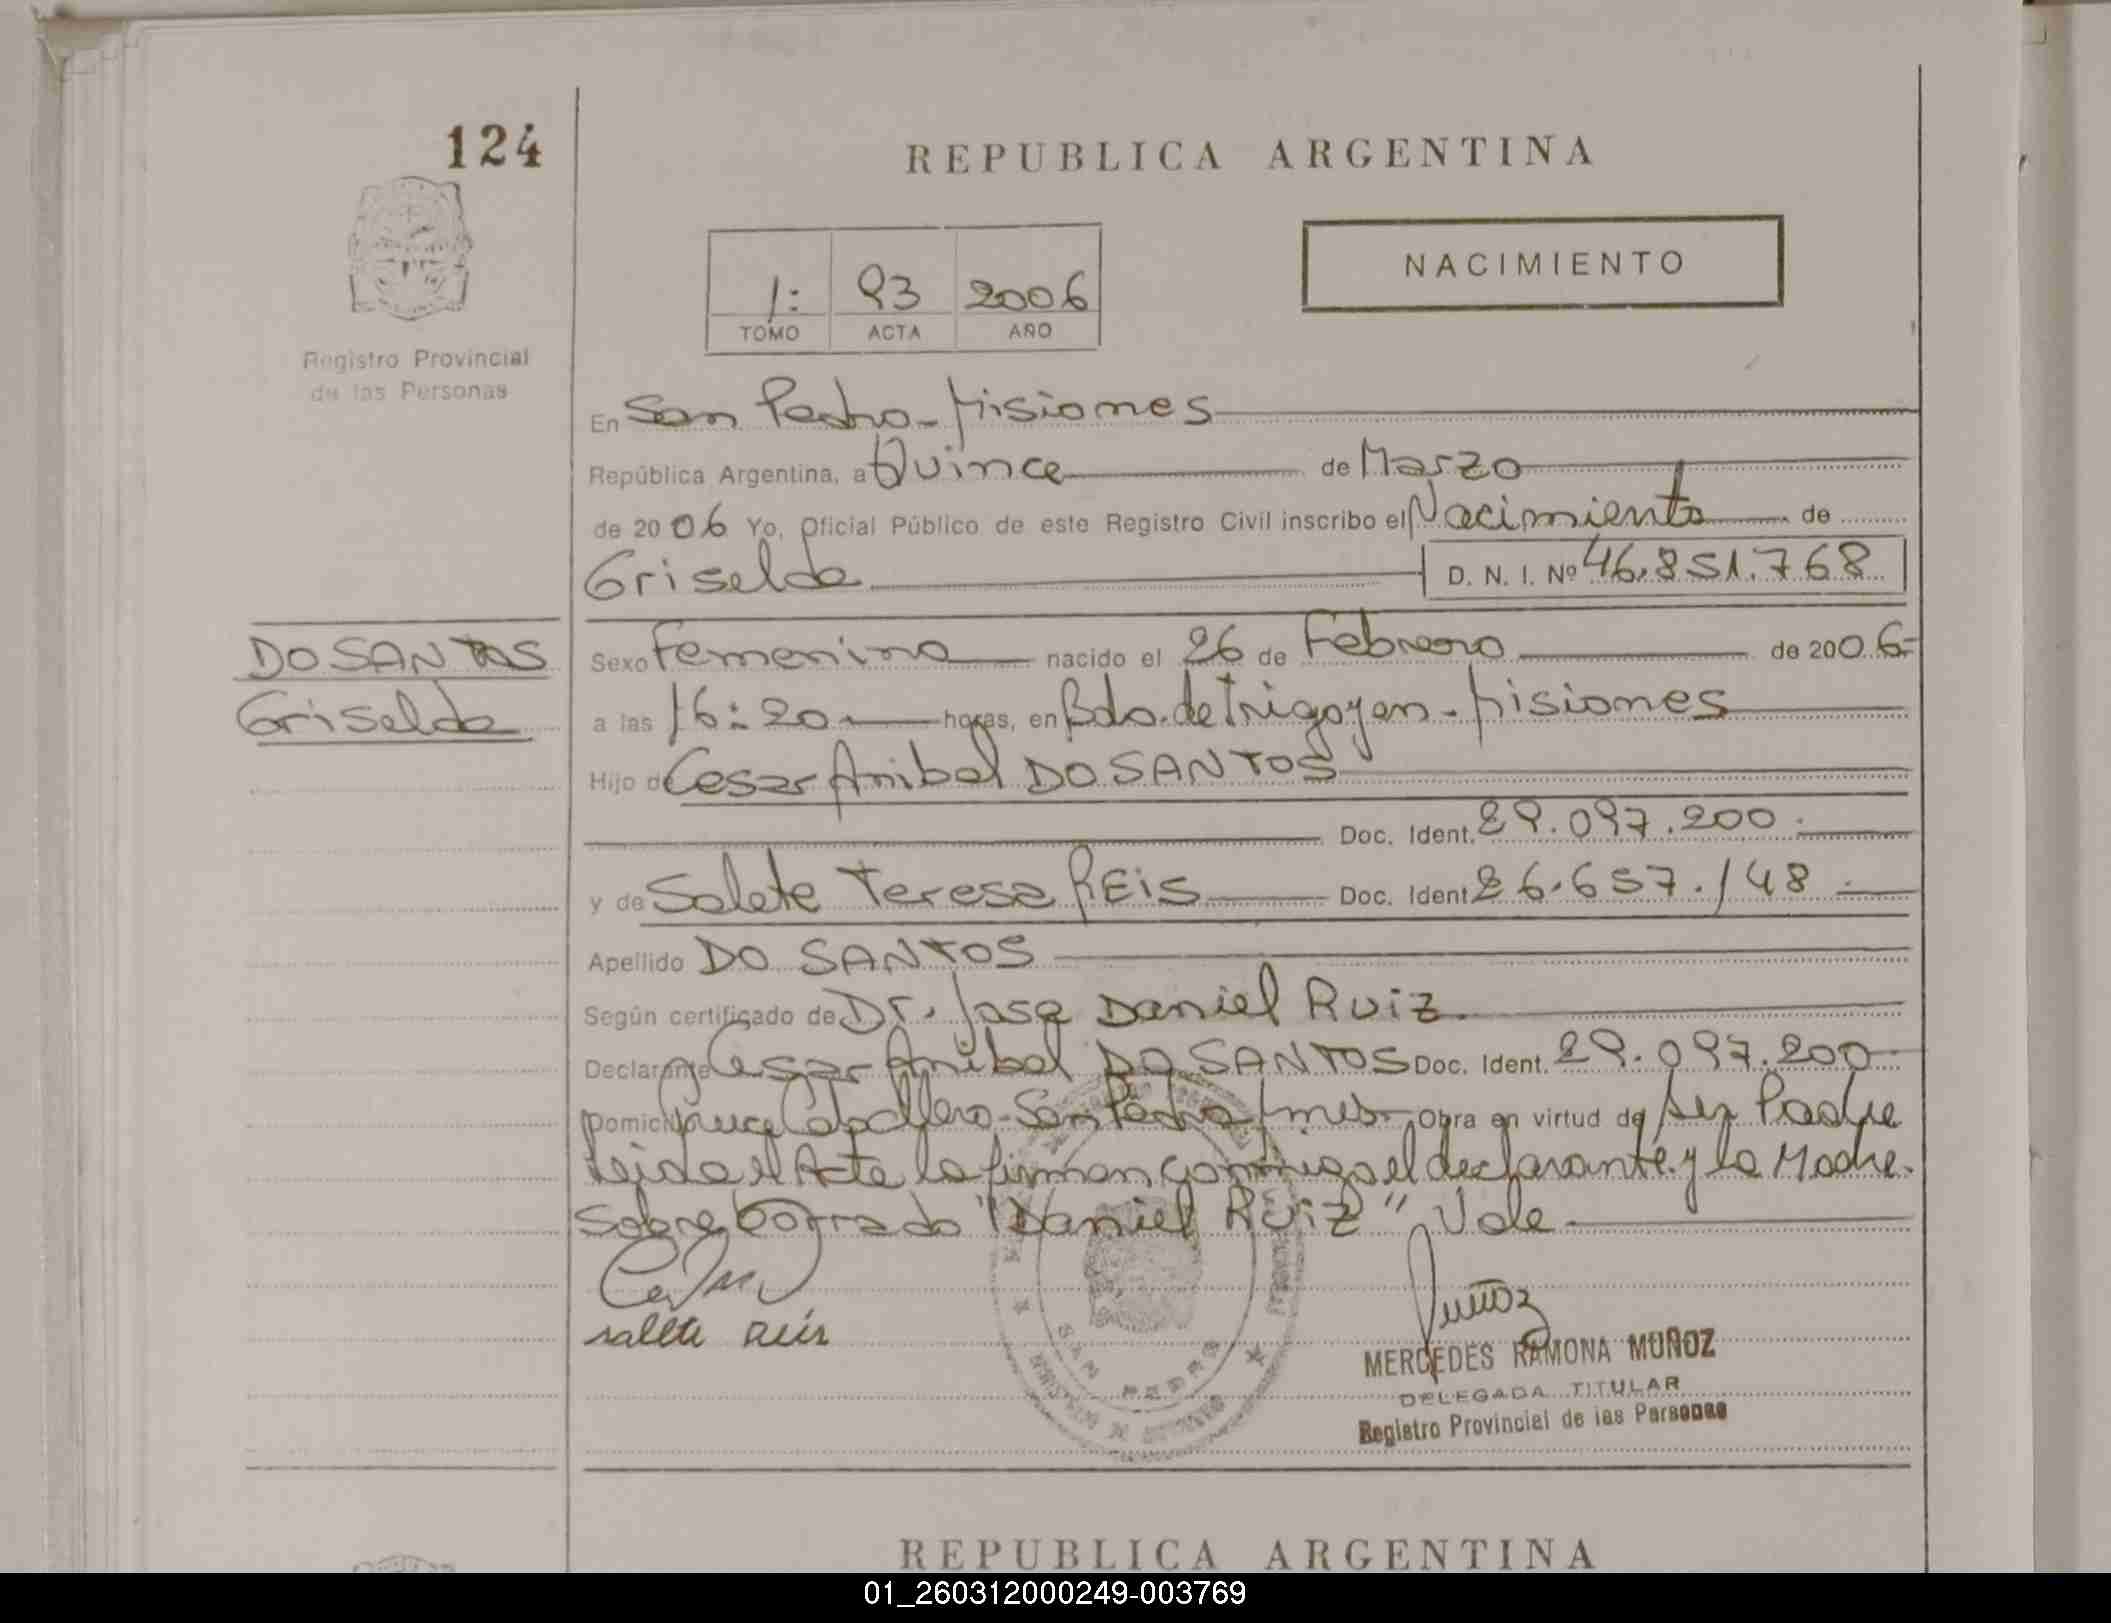 124
REPUBLICA ARGENTINA
NACIMIENTO
1: 93 2006
TOMO ACTA AÑO
Registro Provincial
de las Personas
En San Pedro - Misiones
República Argentina, a Quince de Marzo
de 2006 Yo, Oficial Público de este Registro Civil inscribo el Nacimiento de
Griselda D. N. I. Nº 46.851.768
DO SANTOS
Griselda
Sexo Femenino nacido el 26 de Febrero de 2006-
a las 16:20 horas, en Bdo. de Irigoyen - Misiones
Hijo de Cesar Anibal DO SANTOS
Doc. Ident. 29.097.200.
y de Salete Teresa REIS Doc. Ident. 26.657.148
Apellido DO SANTOS
Según certificado de Dr. Jose Daniel Ruiz.
Declarante Cesar Anibal DO SANTOS Doc. Ident. 29.097.200
Domic. Cruce Caballero - San Pedro, Mnes. Obra en virtud de ser Padre
Leida el Acta la firman conmigo el declarante y la Madre.
Sobre borrado "Daniel Ruiz" Vale
salete reis
Muñoz
MERCEDES RAMONA MUÑOZ
DELEGADA TITULAR
Registro Provincial de las Personas
SAN PEDRO
REPUBLICA ARGENTINA
01_260312000249-003769